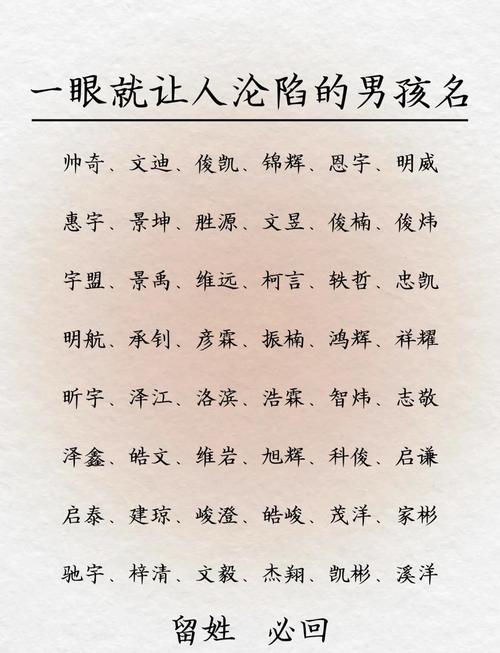 一眼就让人沦陷的男孩名
帅奇、文迪、俊凯、锦辉、恩宇、明威
惠宇、景坤、胜源、文昱、俊楠、俊炜
宇盟、景禹、维远、柯言、轶哲、忠凯
明航、承钊、彦霖、振楠、鸿辉、祥耀
昕宇、泽江、洛滨、浩霖、智炜、志敬
泽鑫、皓文、维岩、旭辉、科俊、启谦
启泰、建琼、峻澄、皓峻、茂洋、家彬
驰宇、梓清、文毅、杰翔、凯彬、溪洋
留姓 必回